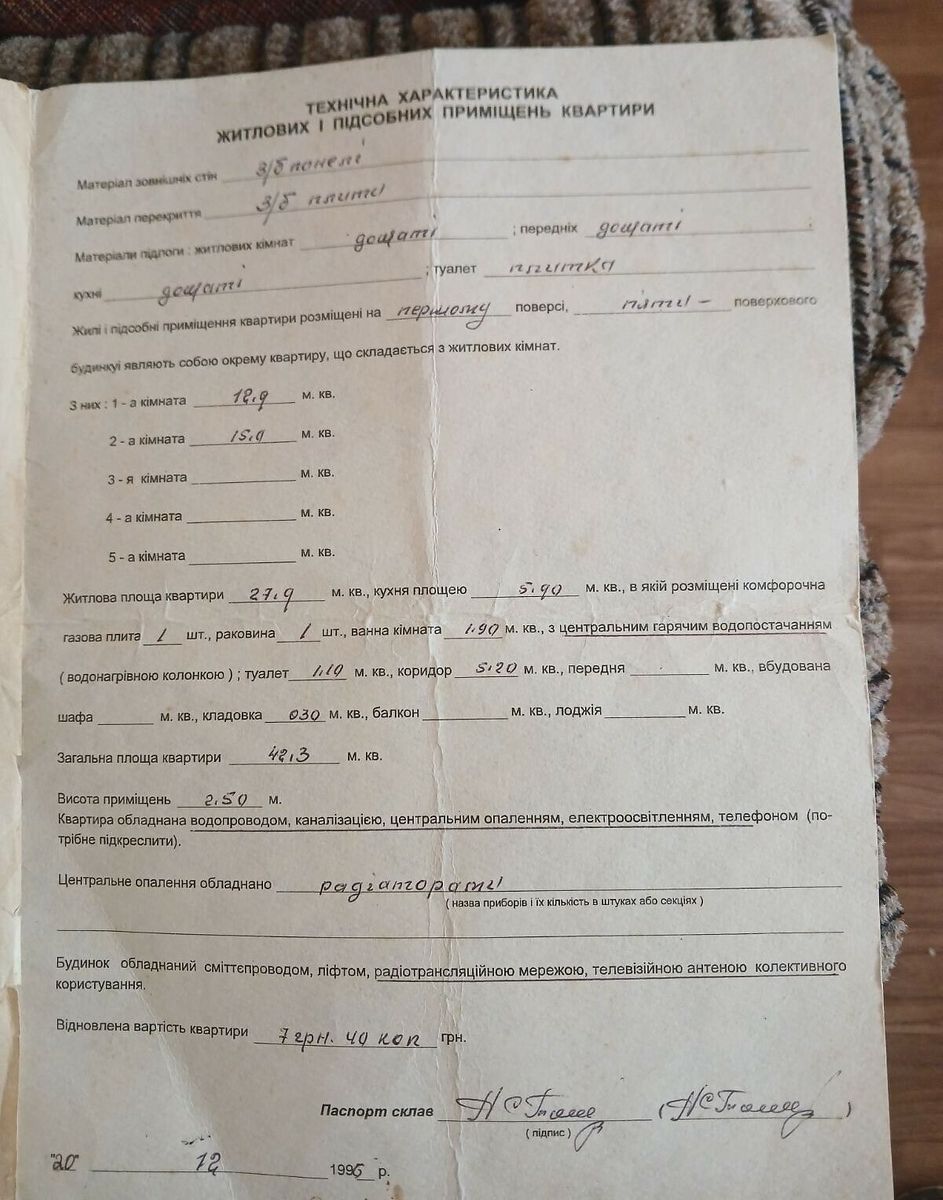 ТЕХНІЧНА ХАРАКТЕРИСТИКА
ЖИТЛОВИХ І ПІДСОБНИХ ПРИМІЩЕНЬ КВАРТИРИ
Матеріал зовнішніх стін з/б понелі
Матеріал перекриття з/б плити
Матеріали підлоги : житлових кімнат дощаті ; передніх дощаті
кухні дощаті ; туалет плитка
Жилі і підсобні приміщення квартири розміщені на першому поверсі, пяти – поверхового
будинкуі являють собою окрему квартиру, що складається з житлових кімнат.
З них : 1 - а кімната 12.9 м. кв.
2 - а кімната 15.0 м. кв.
3 - я кімната м. кв.
4 - а кімната м. кв.
5 - а кімната м. кв.
Житлова площа квартири 27.9 м. кв., кухня площею 5.90 м. кв., в якій розміщені комфорочна
газова плита 1 шт., раковина 1 шт., ванна кімната 1.90 м. кв., з центральним гарячим водопостачанням
( водонагрівною колонкою ) ; туалет 1.10 м. кв., коридор 5.20 м. кв., передня м. кв., вбудована
шафа м. кв., кладовка 030 м. кв., балкон м. кв., лоджія м. кв.
Загальна площа квартири 42.3 м. кв.
Висота приміщень 2.50 м.
Квартира обладнана водопроводом, каналізацією, центральним опаленням, електроосвітленням, телефоном (по-
трібне підкреслити).
Центральне опалення обладнано радіаторами
( назва приборів і їх кількість в штуках або секціях )
Будинок обладнаний сміттєпроводом, ліфтом, радіотрансляційною мережою, телевізійною антеною колективного
користування.
Відновлена вартість квартири 7 грн. 40 коп грн.
Паспорт склав
( підпис )
"20" 12 1996 р.